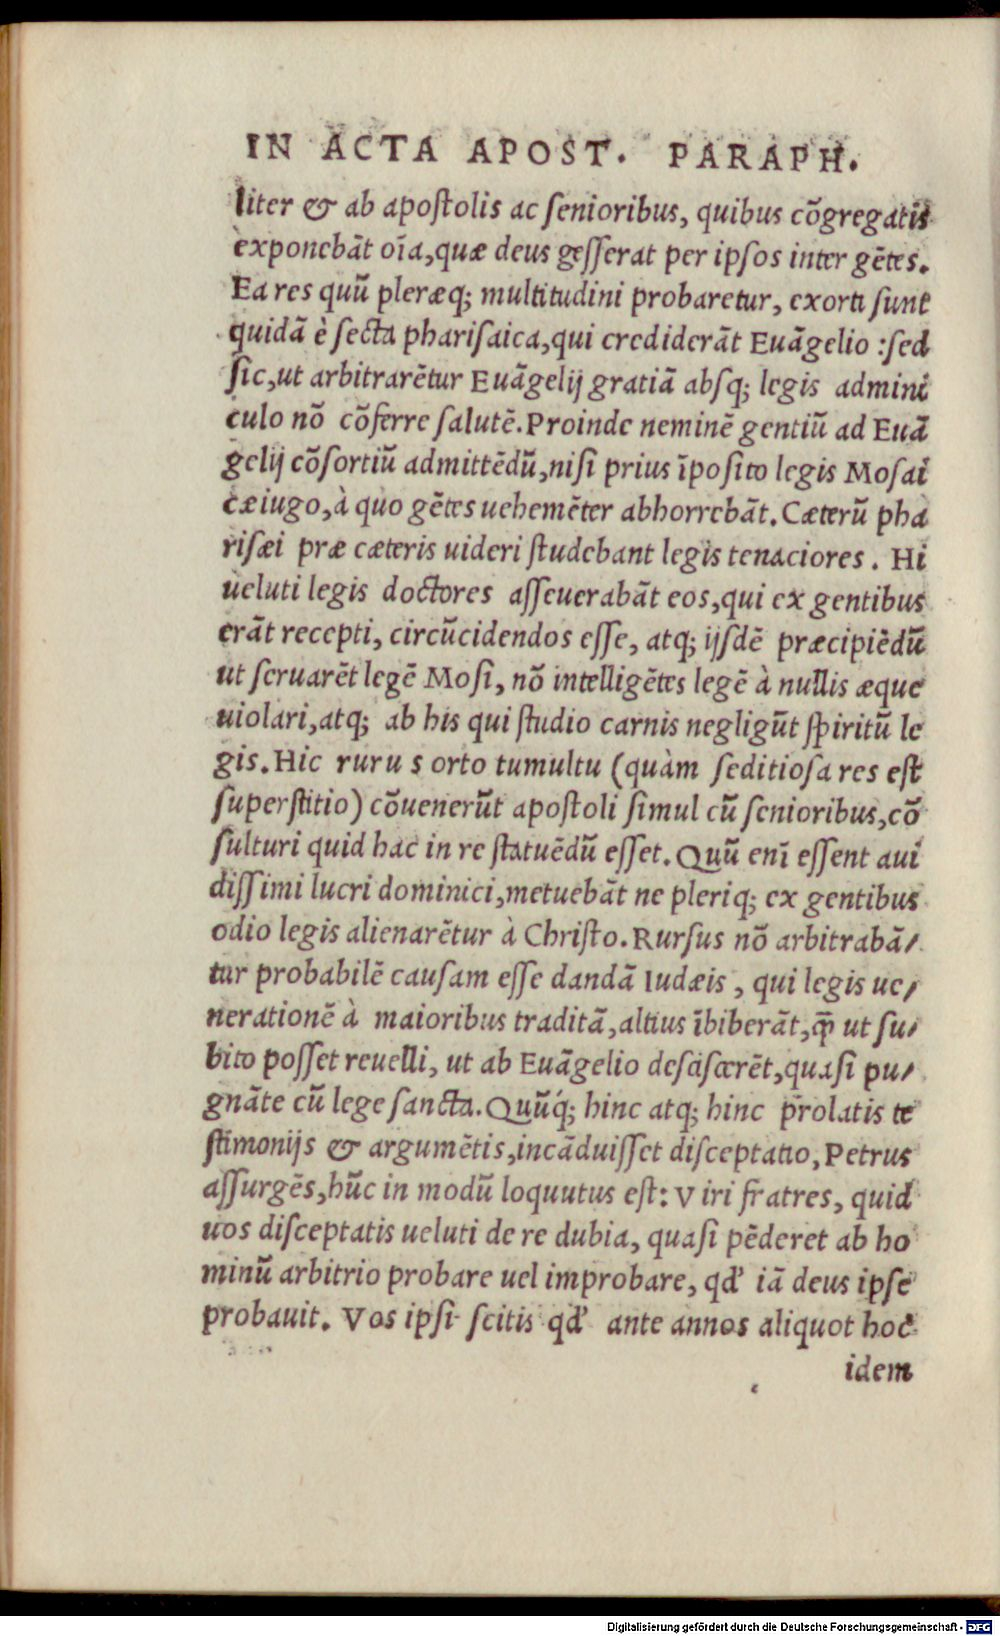 IN ACTA APOST. PARAPH.
liter & ab apostolis ac senioribus, quibus cõgregatis
exponebãt oĩa, quæ deus gesserat per ipsos inter gẽtes.
Ea res quũ pleræq; multitudini probaretur, exorti sunt
quidã è secta pharisaica, qui crediderãt Euãgelio : sed
sic, ut arbitrarẽtur Euãgelij gratiã absq; legis admini
culo nõ cõferre salutẽ. Proinde neminẽ gentiũ ad Euã
gelij cõsortiũ admittẽdũ, nisi prius ĩposito legis Mosai
cæ iugo, à quo gẽtes uehemẽter abhorrebãt. Cæterũ pha
risæi præ cæteris uideri studebant legis tenaciores. Hi
ueluti legis doctores asseuerabãt eos, qui ex gentibus
erãt recepti, circũcidendos esse, atq; ijsdẽ præcipiẽdũ
ut seruarẽt legẽ Mosi, nõ intelligẽtes legẽ à nullis æque
uiolari, atq; ab his qui studio carnis negligũt spiritũ le
gis. Hic ruru s orto tumultu (quàm seditiosa res est
superstitio) cõuenerũt apostoli simul cũ senioribus, cõ
sulturi quid hac in re statuẽdũ esset. Quũ enĩ essent aui
dissimi lucri dominici, metuebãt ne pleriq; ex gentibus
odio legis alienarẽtur à Christo. Rursus nõ arbitrabã/
tur probabilẽ causam esse dandã Iudæis, qui legis ue/
nerationẽ à maioribus traditã, altius ĩbiberãt, q̃ ut su/
bito posset reuelli, ut ab Euãgelio descisceret̃, quasi pu/
gnãte cũ lege sancta. Quũq́; hinc atq; hinc prolatis te
stimonijs & argumẽtis, incãduisset disceptatio, Petrus
assurgẽs, hũc in modũ loquutus est: Viri fratres, quid
uos disceptatis ueluti de re dubia, quasi pẽderet ab ho
minũ arbitrio probare uel improbare, qđ iã deus ipse
probauit. Vos ipsi scitis qđ ante annos aliquot hoc
idem
Digitalisierung gefördert durch die Deutsche Forschungsgemeinschaft - DFG